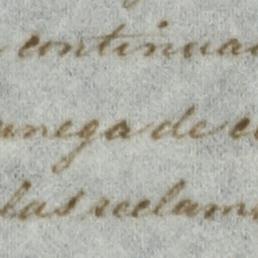 continua
anega de
las reclam